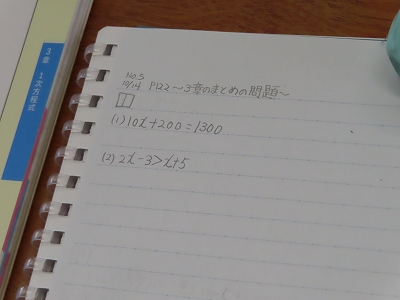 3章 1次方程式
No.3
10/14 P122 ～3章のまとめの問題～
1
(1) 10x+200=1300
(2) 2x-3>x+5